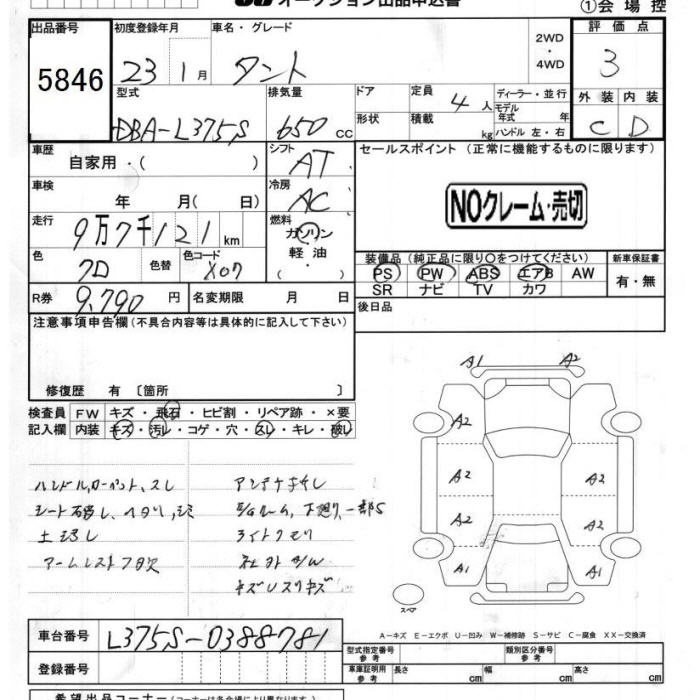 オークション出品申込書
①会場控
出品番号
5846
初度登録年月
23 1月
車名・グレード
タント
2WD
・
4WD
評価点
3
外装 内装
C D
型式
DBA-L375S
排気量
650 CC
ドア
形状
定員
4人
積載
kg
ディーラー・並行
モデル
年式 年
ハンドル 左・右
車歴
自家用・( )
シフト
AT
セールスポイント (正常に機能するものに限ります)
NOクレーム・売切
車検
年 月( 日)
冷房
AC
走行
9万7千121km
燃料
ガソリン
軽油
・( )
色
クロ
色替
色コード
X07
装備品 (純正品に限り○をつけてください)
新車保証書
PS PW ABS エアB AW
SR ナビ TV カワ
有・無
R券
9,790円
名変期限 月 日
後日品
注意事項申告欄(不具合内容等は具体的に記入して下さい)
修復歴 有 〔箇所 〕
検査員 FW キズ・飛石・ヒビ割・リペア跡・×要
記入欄 内装 キズ・汚レ・コゲ・穴・スレ・キレ・破レ
アームレスト欠
ライトクモリ
A1 A2
A2
A2 A2
A2 A2
A1 A1
スペア
A-キズ E-エクボ U-凹み W-補修跡 S-サビ C-腐食 XX-交換済
車台番号
L375S-0388781
登録番号
型式指定番号
参考
類別区分番号
参考
車庫証明用
参考
長さ cm 幅 cm 高さ cm
希望出品コーナー(コーナーは各会場により異なります)